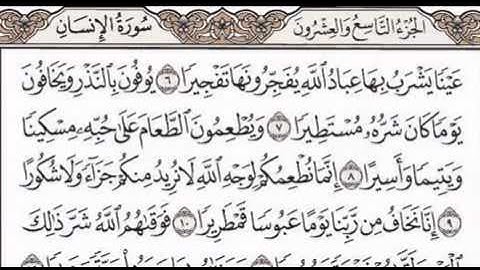 الجُزْءُ التَّاسِعُ وَالْعِشْرُونَ
سُورَةُ الْإِنْسَانِ
عَيْنًا يَشْرَبُ بِهَا عِبَادُ ٱللَّهِ يُفَجِّرُونَهَا تَفْجِيرًا ٦ يُوفُونَ بِٱلنَّذْرِ وَيَخَافُونَ
يَوْمًا كَانَ شَرُّهُۥ مُسْتَطِيرًا ٧ وَيُطْعِمُونَ ٱلطَّعَامَ عَلَىٰ حُبِّهِۦ مِسْكِينًا
وَيَتِيمًا وَأَسِيرًا ٨ إِنَّمَا نُطْعِمُكُمْ لِوَجْهِ ٱللَّهِ لَا نُرِيدُ مِنكُمْ جَزَآءً وَلَا شُكُورًا
٩ إِنَّا نَخَافُ مِن رَّبِّنَا يَوْمًا عَبُوسًا قَمْطَرِيرًا ١٠ فَوَقَىٰهُمُ ٱللَّهُ شَرَّ ذَٰلِكَ